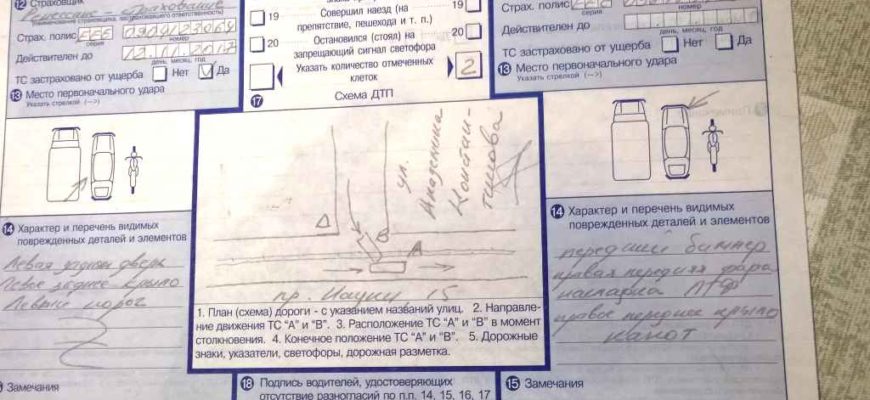 12 Страховщик
Ренессанс - страхование
(наименование страховщика, застраховавшего ответственность)
Страх. полис ЕЕЕ
серия номер
Действителен до
день, месяц, год
ТС застраховано от ущерба Нет Да
13 Место первоначального удара
Указать стрелкой (-->)
14 Характер и перечень видимых
поврежденных деталей и элементов
Левая задняя дверь
Левое заднее крыло
Левый порог
Замечания
19 Совершил наезд (на 19
препятствие, пешехода и т. п.)
20 Остановился (стоял) на 20
запрещающий сигнал светофора
Указать количество отмеченных 2
клеток
17 Схема ДТП
ул.
Академика
Констан-
тинова
В
А
пр. Науки 15
1. План (схема) дороги - с указанием названий улиц. 2. Направле-
ние движения ТС "А" и "В". 3. Расположение ТС "А" и "В" в момент
столкновения. 4. Конечное положение ТС "А" и "В". 5. Дорожные
знаки, указатели, светофоры, дорожная разметка.
18 Подпись водителей, удостоверяющих
отсутствие разногласий по п.п. 14, 15, 16, 17
Страх. полис
серия номер
Действителен до
день, месяц, год
ТС застраховано от ущерба Нет Да
13 Место первоначального удара
Указать стрелкой (-->)
14 Характер и перечень видимых
поврежденных деталей и элементов
передний бампер
правая передняя фара
накладка ПТФ
правое переднее крыло
капот
15 Замечания